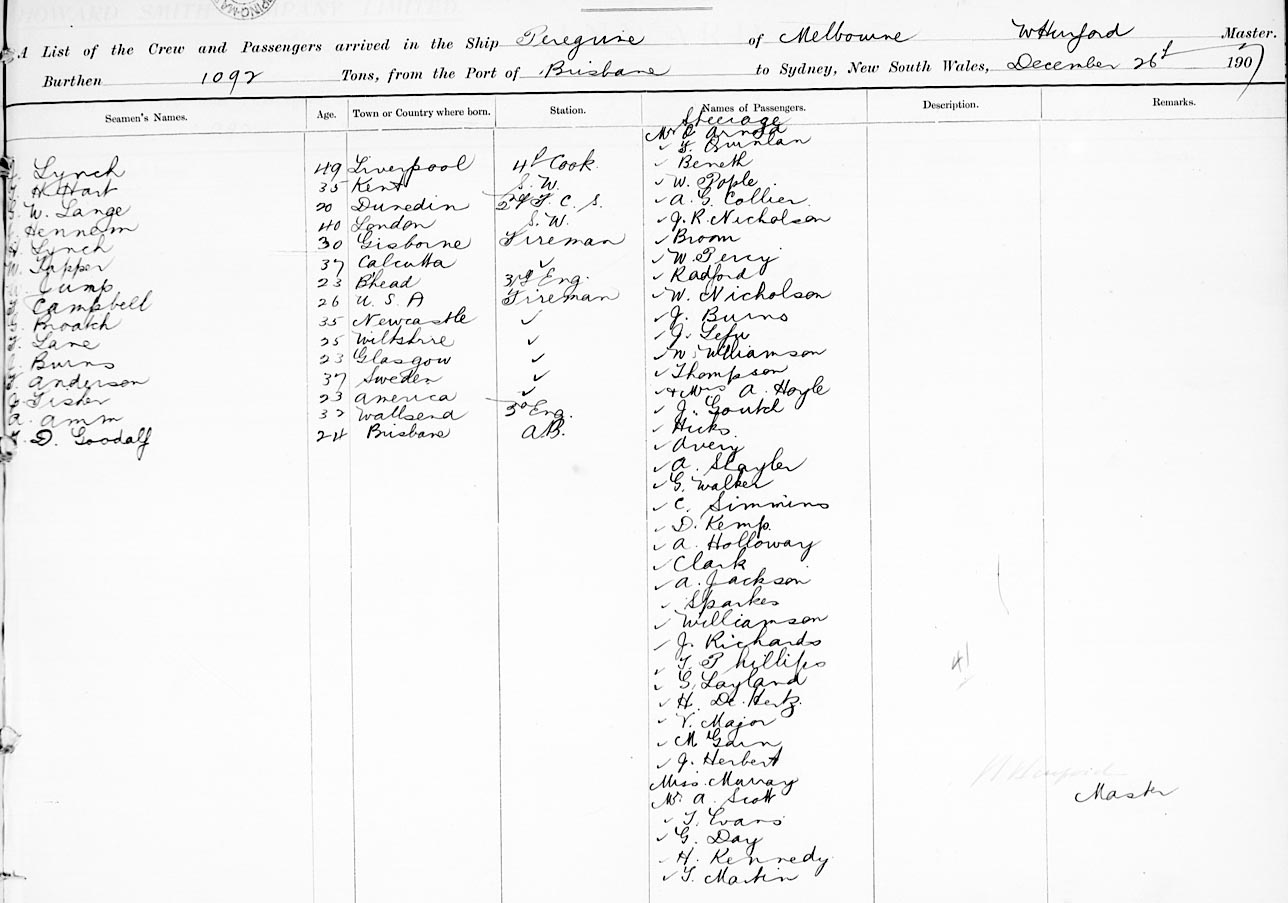 HOWARD SMITH COMPANY LIMITED
A List of the Crew and Passengers arrived in the Ship Peregrine of Melbourne W Hurford Master.
Burthen 1092 Tons, from the Port of Brisbane to Sydney, New South Wales, December 26th 1907
Seamen's Names. Age. Town or Country where born. Station. Names of Passengers. Description. Remarks.
Steerage
Mr Arnold
✓ Quinlan
Lynch 49 Liverpool 4th Cook ✓ Beneth
H Hart 35 Kent S. W. ✓ W. Pople
W. Lange 20 Dunedin 2nd C. S. ✓ A. G. Collier
Hennem 40 London S. W. ✓ J. R. Nicholson
Lynch 30 Gisborne Fireman ✓ Broom
W. Tapper 37 Calcutta ✓ ✓ W. Percy
Jump 23 B'head 3rd Eng. ✓ Radford
Campbell 26 U. S. A Fireman ✓ W. Nicholson
Broatch 35 Newcastle ✓ ✓ J. Burns
Lane 25 Wiltshire ✓ ✓ J.
Burns 23 Glasgow ✓ ✓ W. Williamson
Anderson 37 Sweden ✓ ✓ Thompson
Fisher 23 America ✓ ✓ & Mrs A. Hoyle
A. Amm 32 Wallsend 3rd Eng. ✓ J.
D. 24 Brisbane A.B. ✓ Hicks
✓ Avery
✓ A. Slayler
✓ G. Walker
✓ C. Simmins
✓ D. Kemp.
✓ A. Holloway
✓ Clark
✓ A. Jackson
✓ Sparkes
✓ Williamson
✓ J. Richards
✓ T. Phillips 41
✓ G. Layland
✓ H. De Hertz
✓ V. Major
✓ M Garn
✓ J. Herbert
Miss Murray
Mr. A. Scott Master
✓ T. Evans
✓ G. Day
✓ H. Kennedy
✓ T. Martin